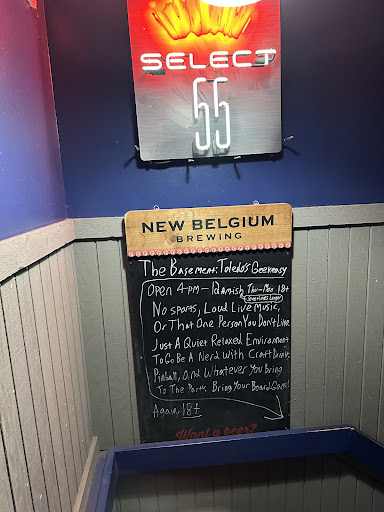 SELECT
55
NEW BELGIUM
BREWING
The Basement: Toledo's Geekeasy
Open 4pm-12amish Thu-Mon 18+
Sometimes Longer
No sports, Loud Live Music,
Or That One Person You Don't Like
Just A Quiet Relaxed Environment
To Go Be A Nerd With Craft Drinks,
Pinball, And Whatever You Bring
To The Party. Bring Your Board Games!
Again, 18+
Want a beer?